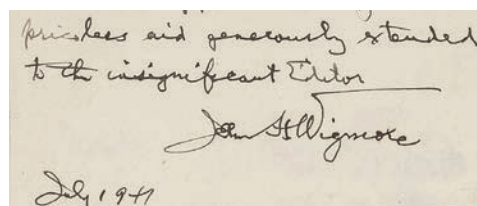 priceless aid generously extended
to the insignificant Editor
John H Wigmore
July 1941